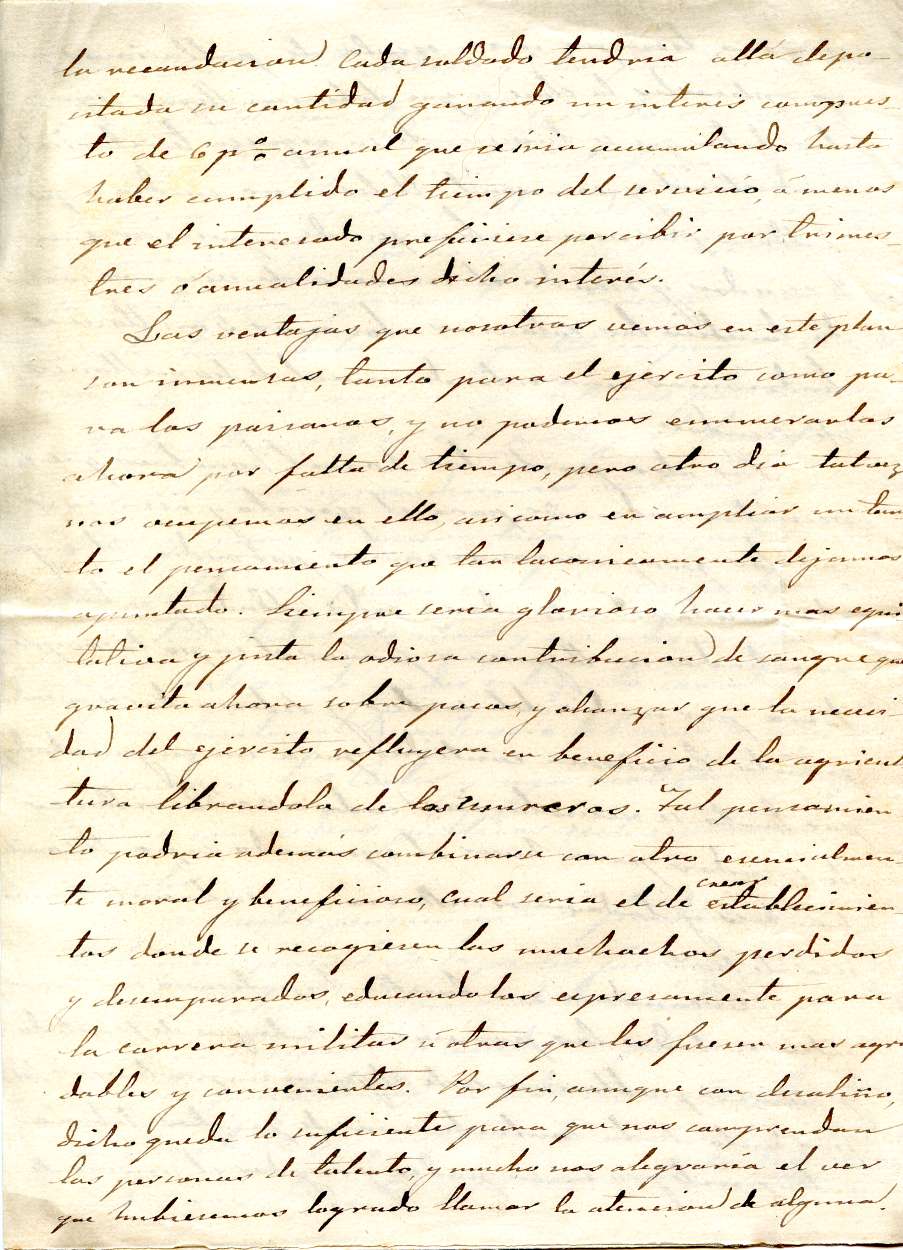 la recaudacion. Cada soldado tendria allá depo-
sitada su cantidad ganando un interes compues-
to de 6 p% anual que se iria acumulando hasta
haber cumplido el tiempo del servicio, á menos
que el interesado prefiriese percibir por trimes-
tres ó anualidades dicho interés.
Las ventajas que nosotros vemos en este plan
son inmensas, tanto para el ejército como pa-
ra los paisanos, y no podemos enumerarlas
ahora por falta de tiempo, pero otro dia talvez
nos ocupemos en ello, asi como en ampliar un tan-
to el pensamiento que tan laconicamente dejamos
apuntado. Siempre seria glorioso hacer mas equi
tativa y justa la odiosa contribucion de sangre que
gravita ahora sobre pocos, y alcanzar que la necesi-
dad del ejército refluyera en beneficio de la agricul
tura librandola de los usureros. Tal pensamien
to podria además combinarse con otro esencialmen-
te moral y beneficioso, cual seria el de crear establecimien-
tos donde se recogiesen los muchachos perdidos
y desamparados, educandolos espresamente para
la carrera militar ú otras que les fuesen mas agra
dables y convenientes. Por fin, aunque con desaliño,
dicho queda lo suficiente para que nos comprendan
las personas de talento, y mucho nos alegraria el ver
que hubiesemos logrado llamar la atencion de alguna.